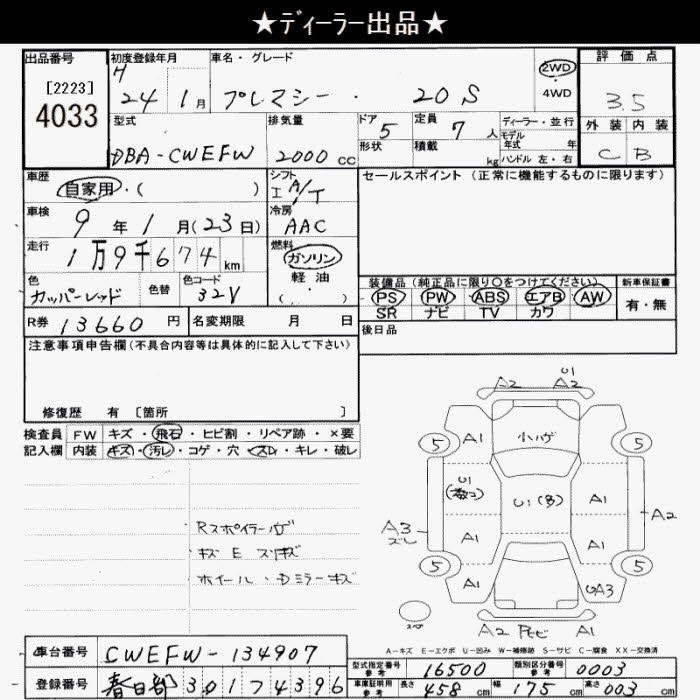 ★ディーラー出品★
出品番号 初度登録年月 車名・グレード 評価点
[2223]
4033
H
24 1月 プレマシー ・ 20S
2WD
・
4WD
3.5
型式 排気量 ドア 定員 ディーラー・並行
外装 内装
DBA-CWEFW 2000cc 5 7人
モデル
年式 年
形状 積載 kg ハンドル 左・右
C B
車歴 シフト セールスポイント (正常に機能するものに限ります)
自家用・( ) I A/T
車検 冷房
9年1月(23日) AAC
走行 燃料
1万9千674km ガソリン
・
軽油
・
( )
色 色替 色コード
カッパーレッド 32V
装備品 (純正品に限り○をつけてください) 新車保証書
PS PW ABS エアB AW 有・無
SR ナビ TV カワ
R券 13660円 名変期限 月 日
後日品
注意事項申告欄(不具合内容等は具体的に記入して下さい)
修復歴 有 〔箇所 〕
検査員 FW キズ・飛石・ヒビ割・リペア跡・×要
記入欄 内装 キズ・汚レ・コゲ・穴・スレ・キレ・破レ
Rスポイラーハゲ
キズ E スリキズ
ホイール・Dミラーキズ
U1
A2 A2
5 A1 小ハゲ A1 5
U1 A1
U1(多)
A3 A1 A1 A2
5 A1 UA3 5
スペア
A2 A1
A-キズ E-エクボ U-凹み W-補修跡 S-サビ C-腐食 XX-交換済
車台番号 CWEFW-134907
型式指定番号
参考
16500
類別区分番号
参考
0003
登録番号 春日部 301 7 4396
車庫証明用
参考
長さ 458cm 幅 175cm 高さ 003cm